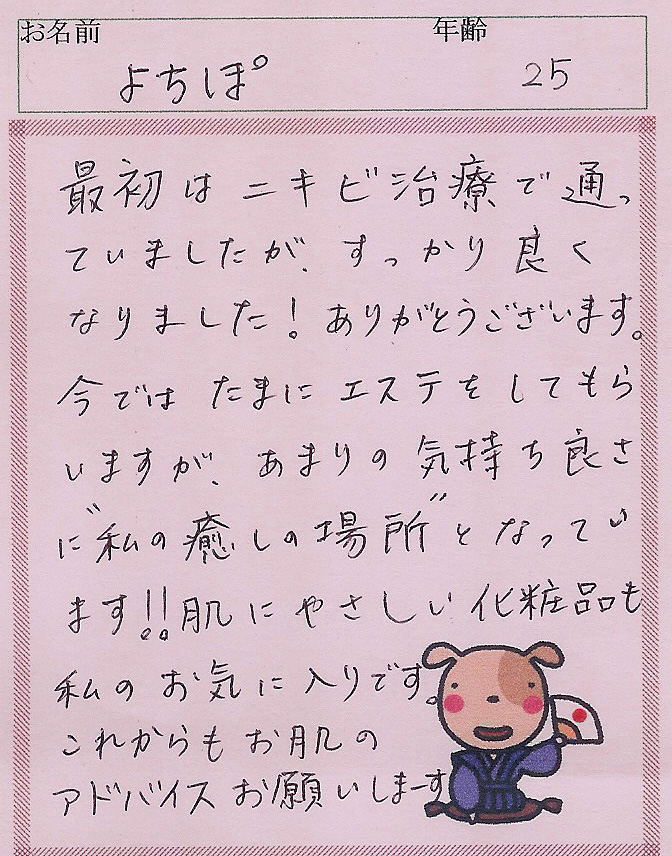 お名前 年齢
よちぽ 25
最初はニキビ治療で通っ
ていましたが、すっかり良く
なりました！ありがとうございます。
今ではたまにエステをしてもら
いますが、あまりの気持ち良さ
に"私の癒しの場所"となってい
ます!!肌にやさしい化粧品も
私のお気に入りです。
これからもお肌の
アドバイスお願いしまーす